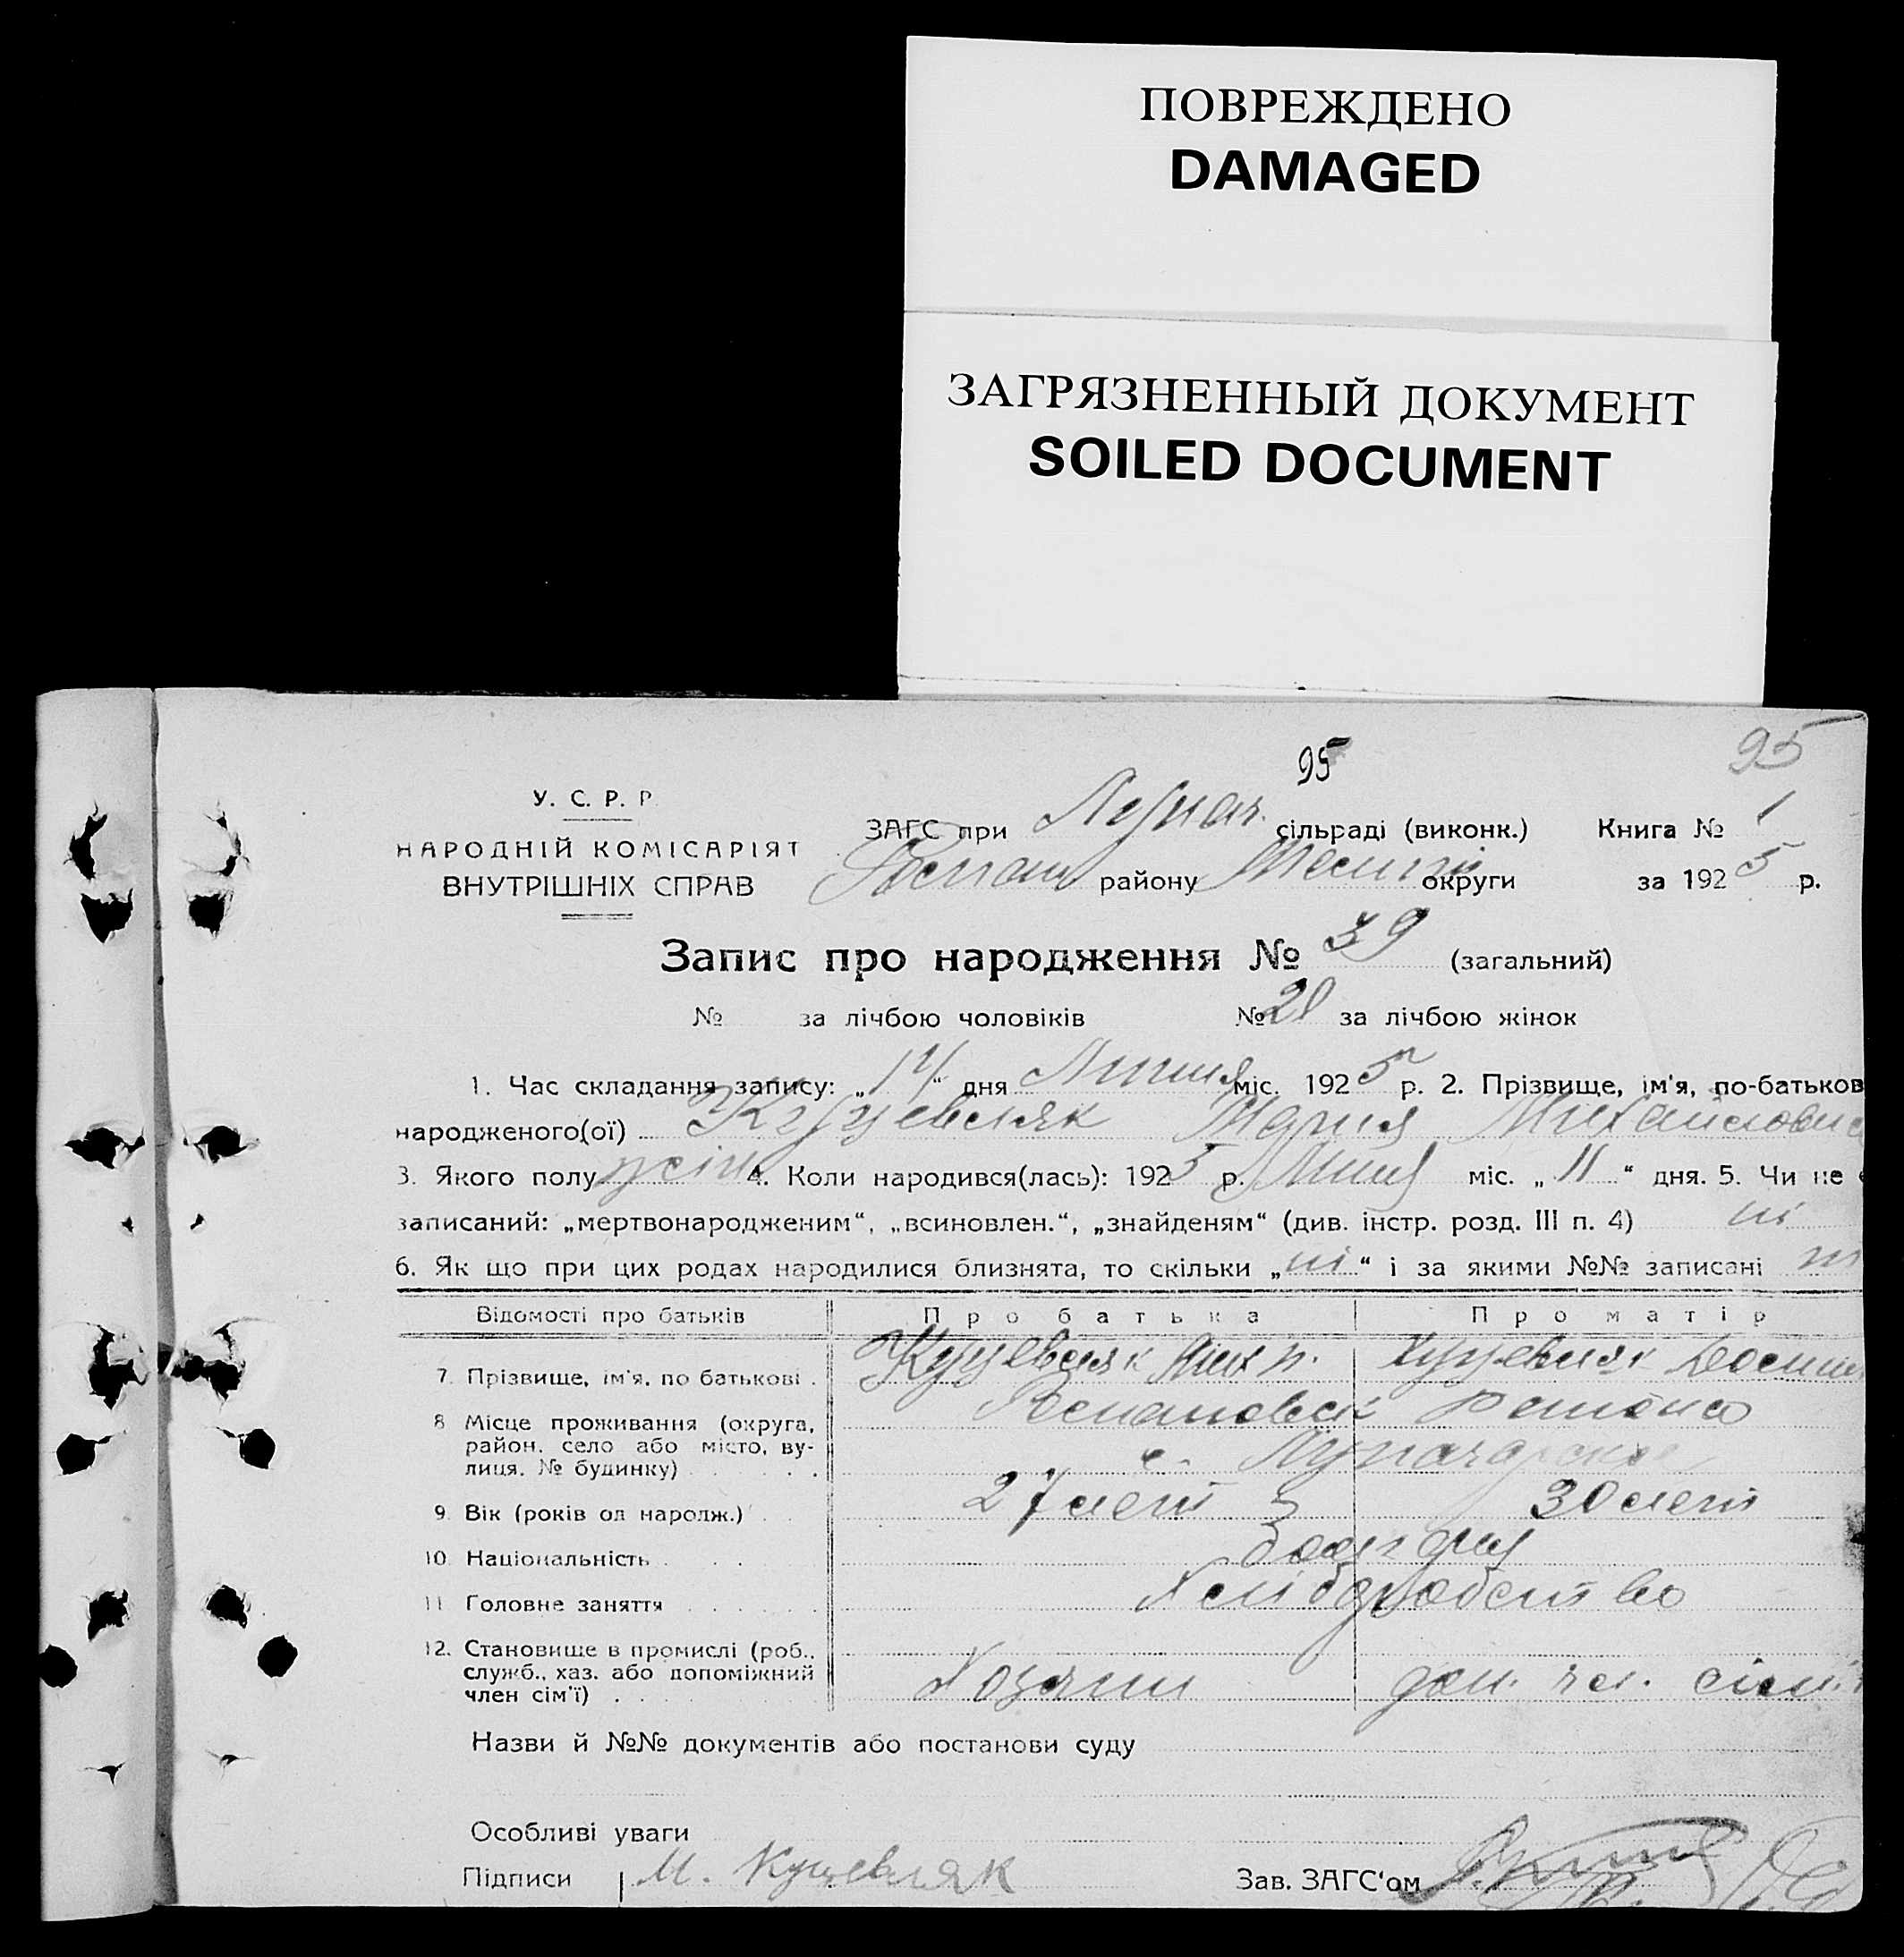 ПОВРЕЖДЕНО
DAMAGED
ЗАГРЯЗНЕННЫЙ ДОКУМЕНТ
SOILED DOCUMENT
95
95
У. С. Р. Р.
НАРОДНІЙ КОМІСАРІЯТ
ВНУТРІШНІХ СПРАВ
ЗАГС при Лунач. сільраді (виконк.) Книга № 1
району округи за 1925 р.
Запис про народження № 39 (загальний)
№ за лічбою чоловіків № 20 за лічбою жінок
1. Час складання запису: „14“ дня Липня міс. 1925 р. 2. Прізвище, ім'я, по-батьков
народженого(ої) Куцевляк Мария Михайловна
3. Якого полу жін 4. Коли народився(лась): 1925 р. Липня міс. „11“ дня. 5. Чи не є
записаний: „мертвонародженим“, „всиновлен.“, „знайденям“ (див. інстр. розд. III п. 4) ні
6. Як що при цих родах народилися близнята, то скільки „ні“ і за якими №№ записані ні
Відомості про батьків Про батька Про матір
7. Прізвище, ім'я, по батькові . Куцевляк Мих п. Куцевляк
8 Місце проживання (округа, район, село або місто, вулиця, № будинку) Романовск Района
с. Луначарское
9. Вік (років од народж.) 27 лет 30 лет
10. Національність Болгари
11 Головне заняття Хліборобство
12. Становище в промислі (роб., служб., хаз. або допоміжний член сім'ї) Хозяин доп. чл. сімї
Назви й №№ документів або постанови суду
Особливі уваги
Підписи М. Куцевляк Зав. ЗАГС'ом